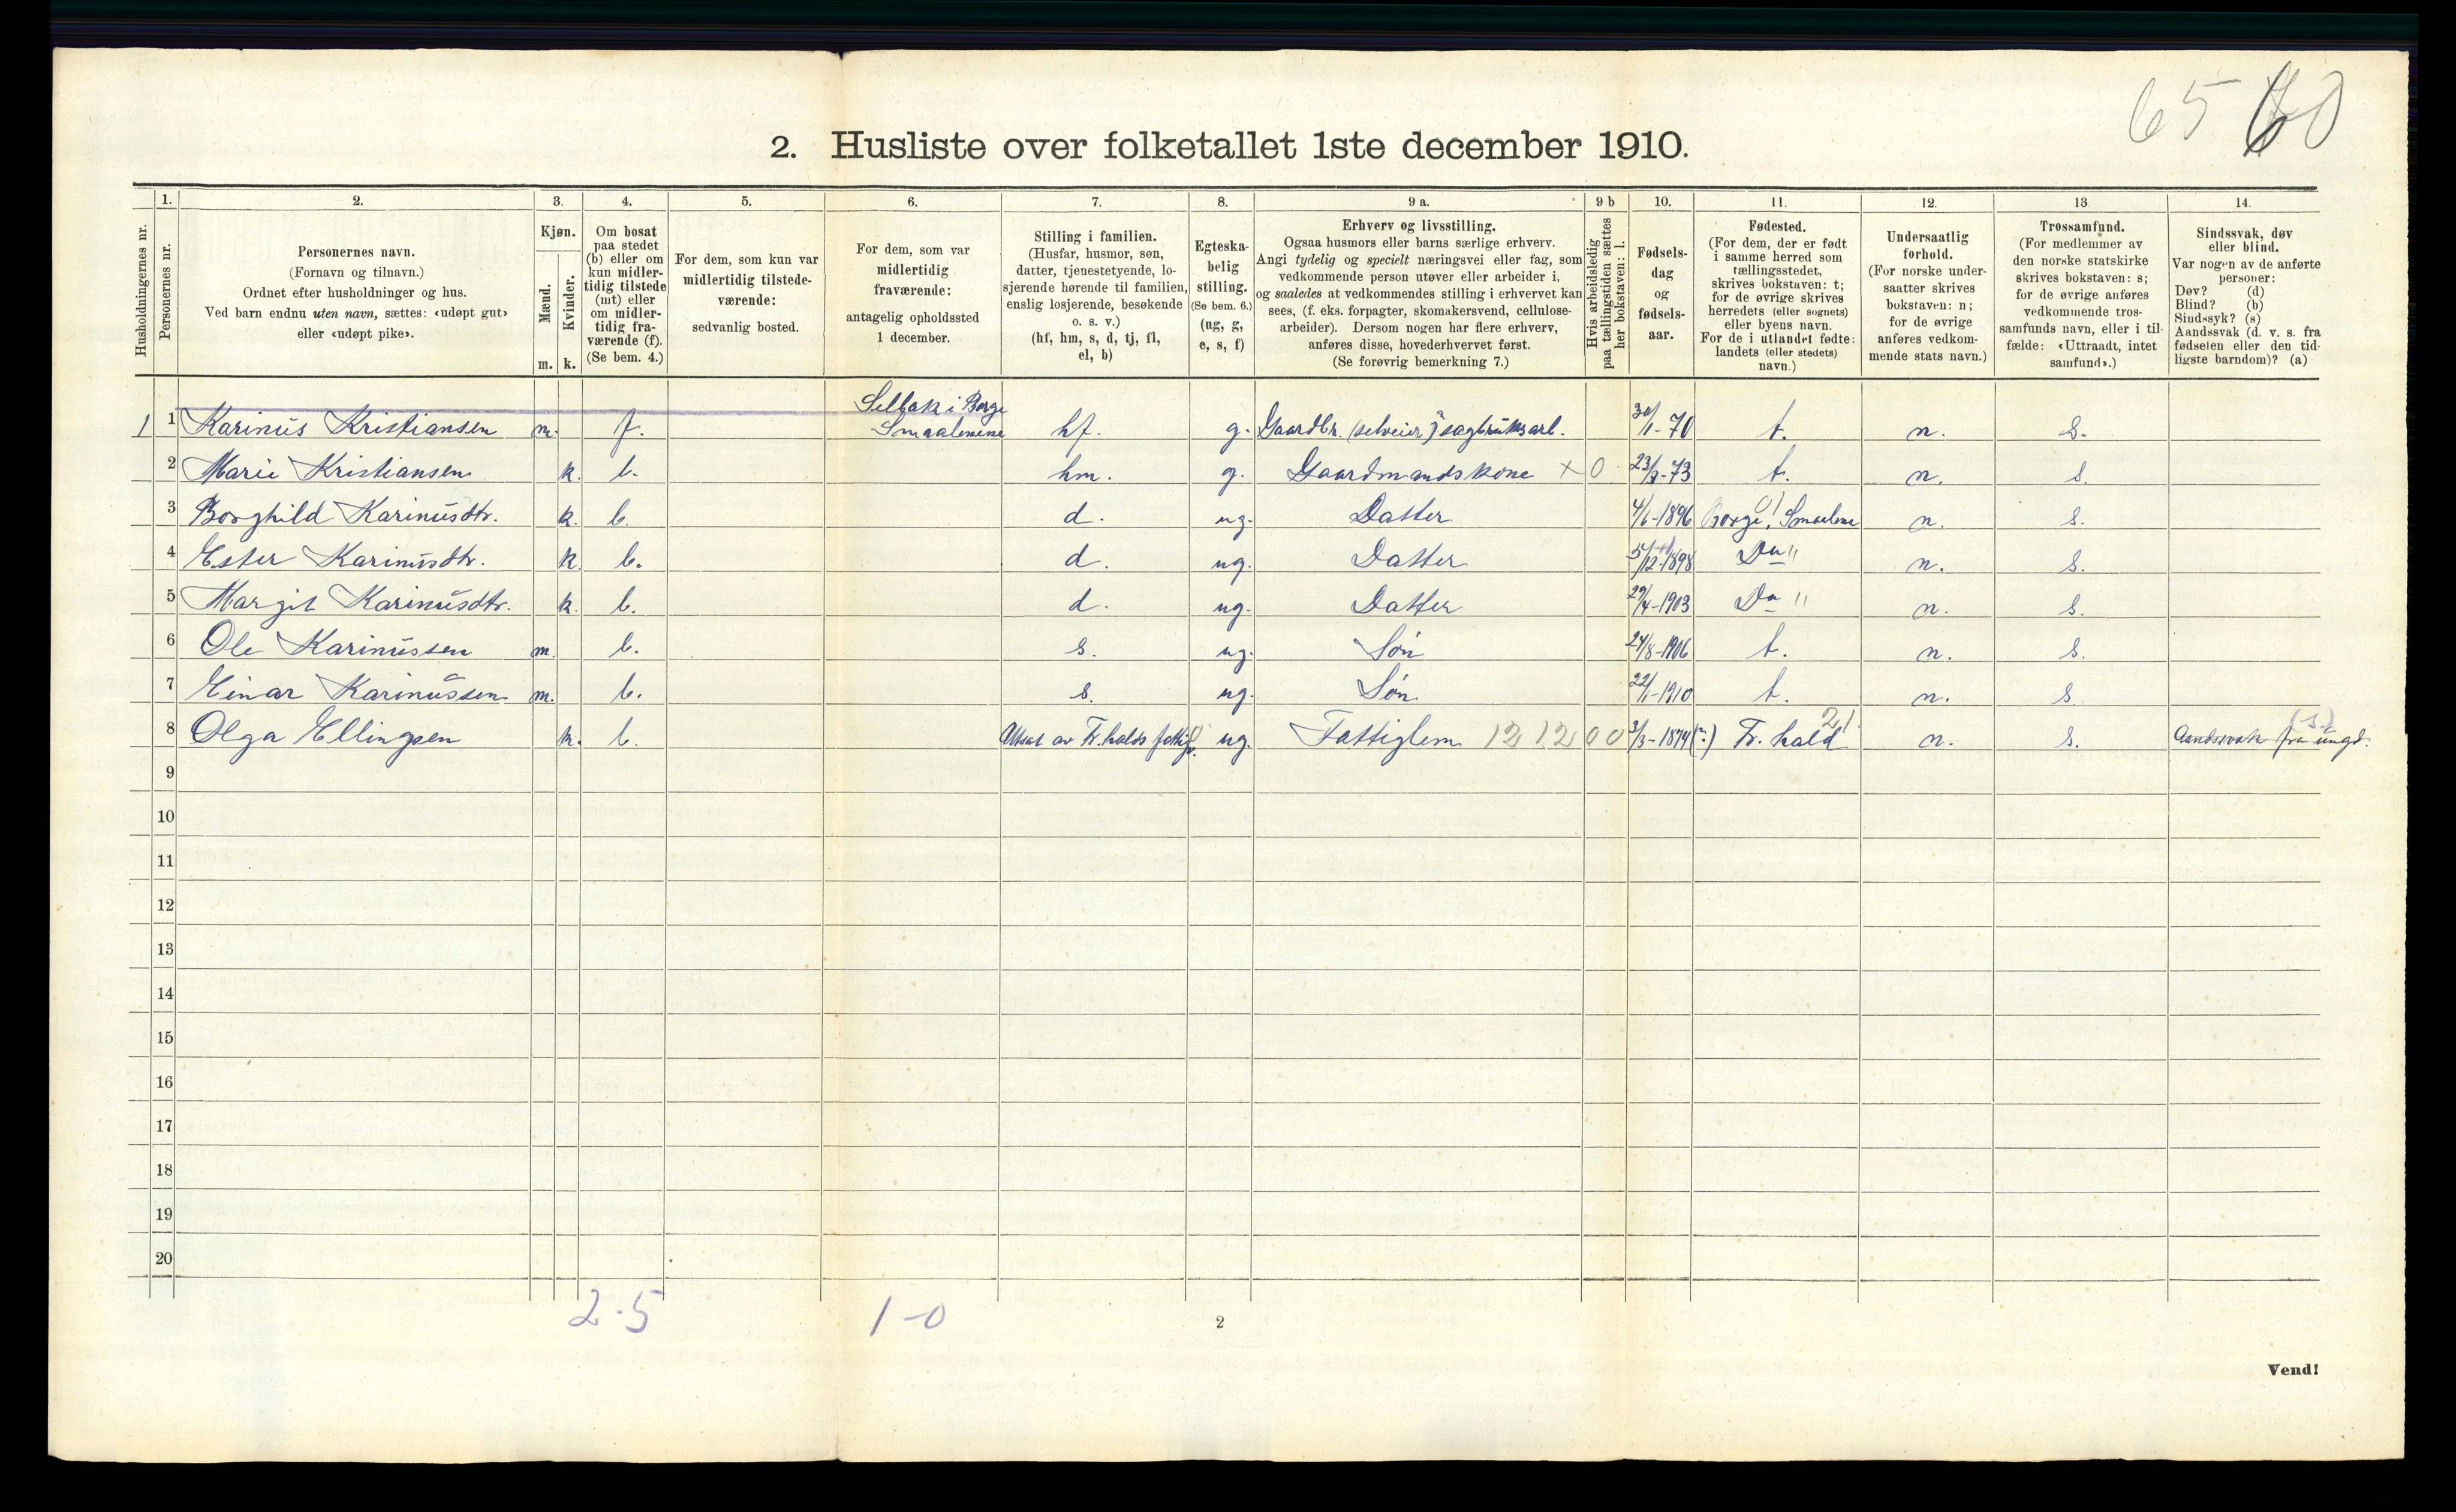 65 60
2. Husliste over folketallet 1ste december 1910.
Husholdningernes nr.
1.
Personernes nr.
2.
Personernes navn.
(Fornavn og tilnavn.)
Ordnet efter husholdninger og hus.
Ved barn endnu uten navn, sættes: «udøpt gut»
eller «udøpt pike».
3.
Kjøn.
Mænd.
m.
Kvinder.
k.
4.
Om bosat
paa stedet
(b) eller om
kun midler-
tidig tilstede
(mt) eller
om midler-
tidig fra-
værende (f).
(Se bem. 4.)
5.
For dem, som kun var
midlertidig tilstede-
værende:
sedvanlig bosted.
6.
For dem, som var
midlertidig
fraværende:
antagelig opholdssted
1 december.
7.
Stilling i familien.
(Husfar, husmor, søn,
datter, tjenestetyende, lo-
sjerende hørende til familien,
enslig losjerende, besøkende
o. s. v.)
(hf, hm, s, d, tj, fl,
el, b)
8.
Egteska-
belig
stilling.
(Se bem. 6.)
(ug, g,
e, s, f)
9 a.
Erhverv og livsstilling.
Ogsaa husmors eller barns særlige erhverv.
Angi tydelig og specielt næringsvei eller fag, som
vedkommende person utøver eller arbeider i,
og saaledes at vedkommendes stilling i erhvervet kan
sees, (f. eks. forpagter, skomakersvend, cellulose-
arbeider). Dersom nogen har flere erhverv,
anføres disse, hovederhvervet først.
(Se forøvrig bemerkning 7.)
9 b
Hvis arbeidsledig
paa tællingstiden sættes
her bokstaven: l.
10.
Fødsels-
dag
og
fødsels-
aar.
11.
Fødested.
(For dem, der er født
i samme herred som
tællingsstedet,
skrives bokstaven: t;
for de øvrige skrives
herredets (eller sognets)
eller byens navn.
For de i utlandet fødte:
landets (eller stedets)
navn.)
12.
Undersaatlig
forhold.
(For norske under-
saatter skrives
bokstaven: n;
for de øvrige
anføres vedkom-
mende stats navn.)
13
Trossamfund.
(For medlemmer av
den norske statskirke
skrives bokstaven: s;
for de øvrige anføres
vedkommende tros-
samfunds navn, eller i til-
fælde: «Uttraadt, intet
samfund».)
14.
Sindssvak, døv
eller blind.
Var nogen av de anførte
personer:
Døv? (d)
Blind? (b)
Sindssyk? (s)
Aandssvak (d. v. s. fra
fødselen eller den tid-
ligste barndom)? (a)
Selbak i Borge
1 1 Karinus Kristiansen m. f. Smaalenene hf. g. Gaardbr. (selveier) sagbruksarb. 30/1-70 t. n. s.
2 Marie Kristiansen k. b. hm. g. Gaardmandskone × 0 23/3-73 t. n. s.
3 Borghild Karinusdtr. k. b. d. ug. Datter 4/1-1896 Borge, Smaalene n. s.
4 Ester Karinusdtr. k. b. d. ug. Datter 5/12-1898 Do " n. s.
5 Margit Karinusdtr. k. b. d. ug. Datter 29/4-1903 Do " n. s.
6 Ole Karinussen m. b. s. ug. Søn 24/8-1906 t. n. s.
7 Einar Karinussen m. b. s. ug. Søn 22/1-1910 t. n. s
8 Olga Ellingsen k. b. Utsat av Fr.halds fattigv. ug. Fattiglem 12 12 0 0 3/3-1874(?) Fr. hald n. s. Aandssvak fra ungd.
9
10
11
12
13
14
15
16
17
18
19
20
2-5 1-0
2
Vend!